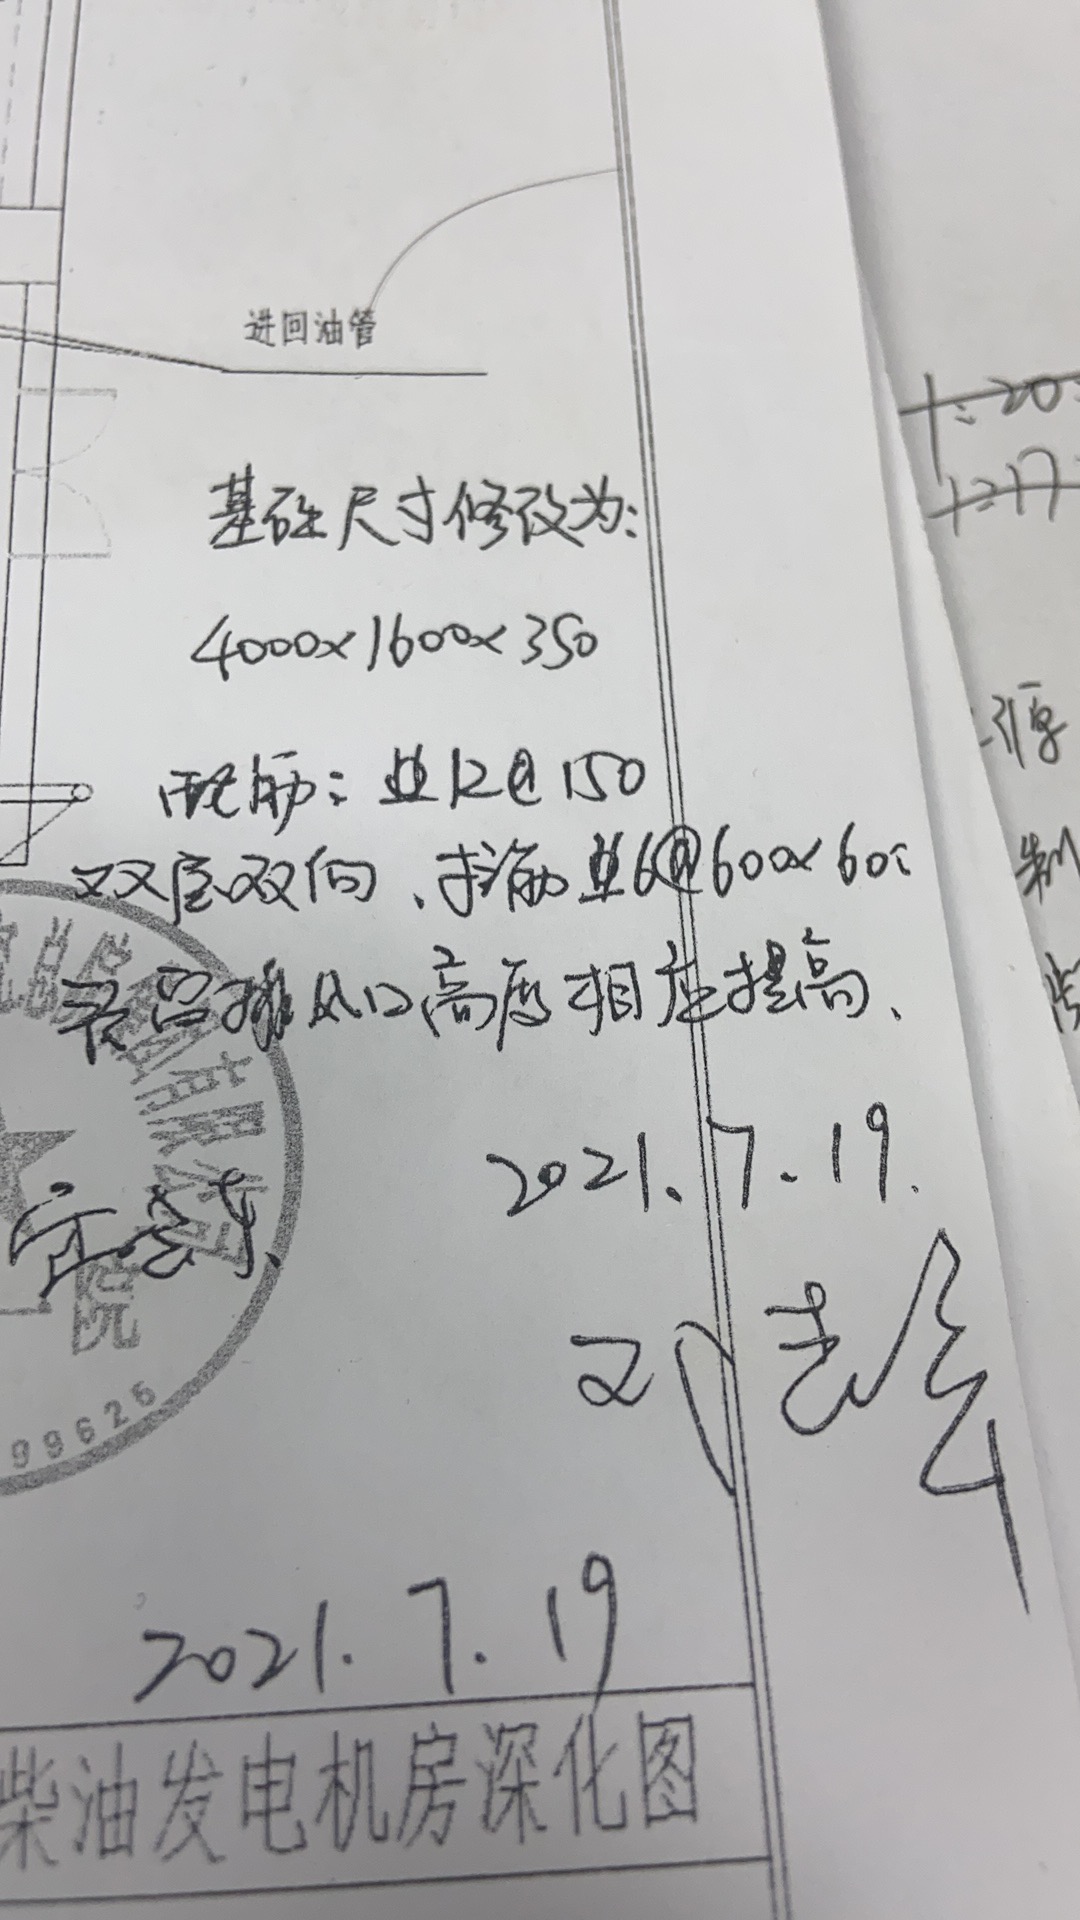 进回油管
1:20
1:17
基础尺寸修改为:
4000x1600x350
配筋:⌀12@150
双层双向、拉筋⌀6@600x600
排风口高度相应提高、
有限公司
院
2021.7.19.
刘志
2021.7.19
99625
柴油发电机房深化图
制